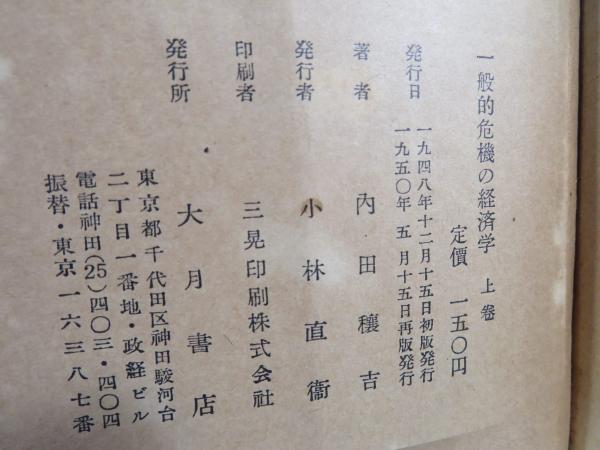 一般的危機の経済学 上巻
定價 一五〇円
発行日 一九四八年十二月十五日初版発行
一九五〇年 五月十五日再版発行
著者 內田穰吉
発行者 小林直衞
印刷者 三晃印刷株式会社
発行所 大月書店
東京都千代田区神田駿河台
二丁目一番地・政経ビル
電話神田(25)四〇三・四〇四
振替・東京一六三八七番